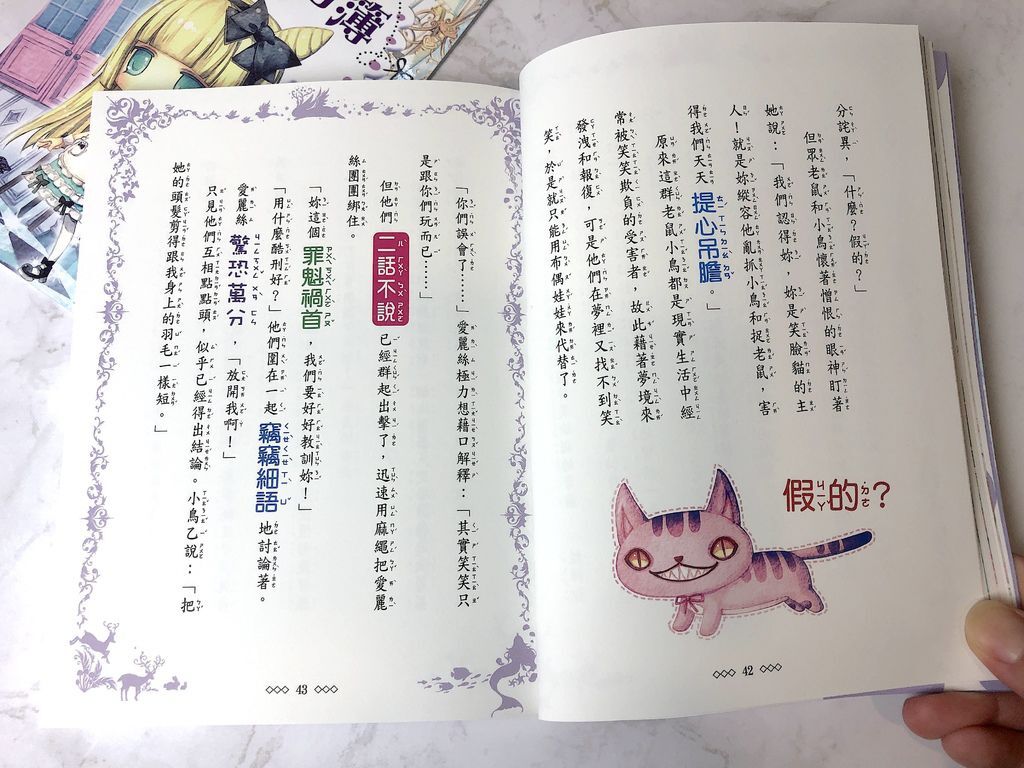 簿
分詫異，「什麼？假的？」
但眾老鼠和小鳥懷著憎恨的眼神盯著
她說：「我們認得妳，妳是笑臉貓的主
人！就是妳縱容他亂抓小鳥和捉老鼠，害
得我們天天提心吊膽。」
原來這群老鼠小鳥都是現實生活中經
常被笑笑欺負的受害者，故此藉著夢境來
發洩和報復，可是他們在夢裡又找不到笑
笑，於是就只能用布偶娃娃來代替了。
假的？
42
「你們誤會了……」愛麗絲極力想藉口解釋：「其實笑笑只
是跟你們玩而已……」
但他們二話不說已經群起出擊了，迅速用麻繩把愛麗
絲團團綁住。
「妳這個罪魁禍首，我們要好好教訓妳！」
「用什麼酷刑好？」他們圍在一起竊竊細語地討論著。
愛麗絲驚恐萬分，「放開我啊！」
只見他們互相點點頭，似乎已經得出結論。小鳥乙說：「把
她的頭髮剪得跟我身上的羽毛一樣短。」
43